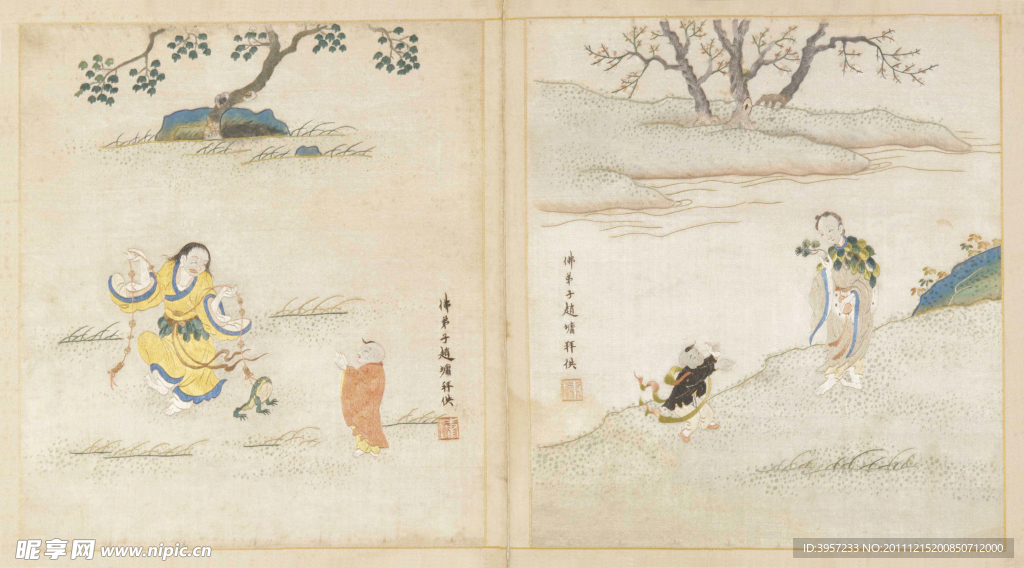 佛弟子趙墉拜供
佛弟子趙墉拜供
昵享网 www.nipic.cn
ID:3957233 NO:20111215200850712000